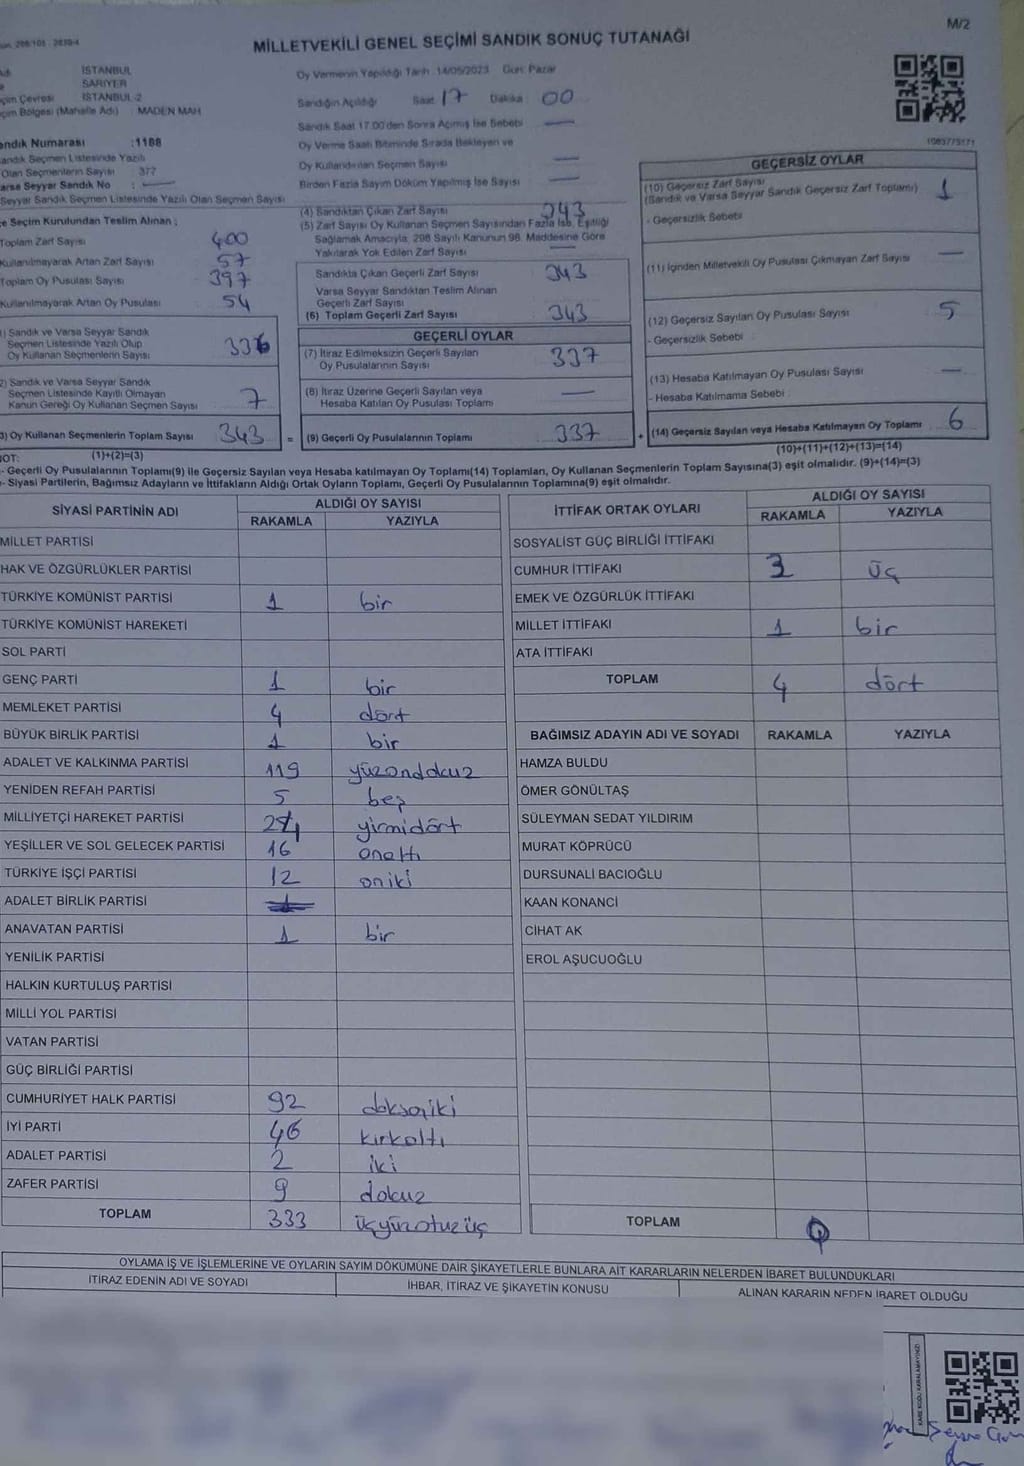 M/2
MİLLETVEKİLİ GENEL SEÇİMİ SANDIK SONUÇ TUTANAĞI
İSTANBUL
SARIYER
Seçim Çevresi İSTANBUL-2
Seçim Bölgesi (Mahalle Adı) : MADEN MAH
Sandık Numarası :1188
Sandık Seçmen Listesinde Yazılı
Olan Seçmenlerin Sayısı : 377
Varsa Seyyar Sandık No : —
Seyyar Sandık Seçmen Listesinde Yazılı Olan Seçmen Sayısı
İlçe Seçim Kurulundan Teslim Alınan ;
Toplam Zarf Sayısı 400
Kullanılmayarak Artan Zarf Sayısı 57
Toplam Oy Pusulası Sayısı 397
Kullanılmayarak Artan Oy Pusulası 54
(1) Sandık ve Varsa Seyyar Sandık
Seçmen Listesinde Yazılı Olup
Oy Kullanan Seçmenlerin Sayısı 336
(2) Sandık ve Varsa Seyyar Sandık
Seçmen Listesinde Kayıtlı Olmayan
Kanun Gereği Oy Kullanan Seçmen Sayısı 7
(3) Oy Kullanan Seçmenlerin Toplam Sayısı 343 =
(1)+(2)=(3)
Oy Vermenin Yapıldığı Tarih : 14/05/2023 Gün: Pazar
Sandığın Açıldığı Saat 17 Dakika 00
Sandık Saat 17.00'den Sonra Açılmış İse Sebebi —
Oy Verme Saati Bitiminde Sırada Bekleyen ve
Oy Kullandırılan Seçmen Sayısı —
Birden Fazla Sayım Döküm Yapılmış İse Sayısı —
(4) Sandıktan Çıkan Zarf Sayısı 343
(5) Zarf Sayısı Oy Kullanan Seçmen Sayısından Fazla İse, Eşitliği
Sağlamak Amacıyla, 298 Sayılı Kanunun 98. Maddesine Göre
Yakılarak Yok Edilen Zarf Sayısı —
Sandıkta Çıkan Geçerli Zarf Sayısı 343
Varsa Seyyar Sandıktan Teslim Alınan
Geçerli Zarf Sayısı
(6) Toplam Geçerli Zarf Sayısı 343
GEÇERLİ OYLAR
(7) İtiraz Edilmeksizin Geçerli Sayılan
Oy Pusulalarının Sayısı 337
(8) İtiraz Üzerine Geçerli Sayılan veya
Hesaba Katılan Oy Pusulası Toplamı —
(9) Geçerli Oy Pusulalarının Toplamı 337 +
1083775171
GEÇERSİZ OYLAR
(10) Geçersiz Zarf Sayısı
(Sandık ve Varsa Seyyar Sandık Geçersiz Zarf Toplamı) 1
- Geçersizlik Sebebi
(11) İçinden Milletvekili Oy Pusulası Çıkmayan Zarf Sayısı —
(12) Geçersiz Sayılan Oy Pusulası Sayısı 5
- Geçersizlik Sebebi
(13) Hesaba Katılmayan Oy Pusulası Sayısı —
- Hesaba Katılmama Sebebi
(14) Geçersiz Sayılan veya Hesaba Katılmayan Oy Toplamı 6
(10)+(11)+(12)+(13)=(14)
NOT:
- Geçerli Oy Pusulalarının Toplamı(9) ile Geçersiz Sayılan veya Hesaba katılmayan Oy Toplamı(14) Toplamları, Oy Kullanan Seçmenlerin Toplam Sayısına(3) eşit olmalıdır. (9)+(14)=(3)
- Siyasi Partilerin, Bağımsız Adayların ve İttifakların Aldığı Ortak Oyların Toplamı, Geçerli Oy Pusulalarının Toplamına(9) eşit olmalıdır.
SİYASİ PARTİNİN ADI ALDIĞI OY SAYISI
RAKAMLA YAZIYLA
MİLLET PARTİSİ
HAK VE ÖZGÜRLÜKLER PARTİSİ
TÜRKİYE KOMÜNİST PARTİSİ 1 bir
TÜRKİYE KOMÜNİST HAREKETİ
SOL PARTİ
GENÇ PARTİ 1 bir
MEMLEKET PARTİSİ 4 dört
BÜYÜK BİRLİK PARTİSİ 1 bir
ADALET VE KALKINMA PARTİSİ 119 yüzondokuz
YENİDEN REFAH PARTİSİ 5 beş
MİLLİYETÇİ HAREKET PARTİSİ 24 yirmidört
YEŞİLLER VE SOL GELECEK PARTİSİ 16 onaltı
TÜRKİYE İŞÇİ PARTİSİ 12 oniki
ADALET BİRLİK PARTİSİ
ANAVATAN PARTİSİ 1 bir
YENİLİK PARTİSİ
HALKIN KURTULUŞ PARTİSİ
MİLLİ YOL PARTİSİ
VATAN PARTİSİ
GÜÇ BİRLİĞİ PARTİSİ
CUMHURİYET HALK PARTİSİ 92 doksaniki
İYİ PARTİ 46 kırkaltı
ADALET PARTİSİ 2 iki
ZAFER PARTİSİ 9 dokuz
TOPLAM 333 üçyüzotuzüç
İTTİFAK ORTAK OYLARI ALDIĞI OY SAYISI
RAKAMLA YAZIYLA
SOSYALİST GÜÇ BİRLİĞİ İTTİFAKI
CUMHUR İTTİFAKI 3 üç
EMEK VE ÖZGÜRLÜK İTTİFAKI
MİLLET İTTİFAKI 1 bir
ATA İTTİFAKI
TOPLAM 4 dört
BAĞIMSIZ ADAYIN ADI VE SOYADI RAKAMLA YAZIYLA
HAMZA BULDU
ÖMER GÖNÜLTAŞ
SÜLEYMAN SEDAT YILDIRIM
MURAT KÖPRÜCÜ
DURSUNALİ BACIOĞLU
KAAN KONANCİ
CİHAT AK
EROL AŞUCUOĞLU
TOPLAM 0
OYLAMA İŞ VE İŞLEMLERİNE VE OYLARIN SAYIM DÖKÜMÜNE DAİR ŞİKAYETLERLE BUNLARA AİT KARARLARIN NELERDEN İBARET BULUNDUKLARI
İTİRAZ EDENİN ADI VE SOYADI İHBAR, İTİRAZ VE ŞİKAYETİN KONUSU ALINAN KARARIN NEDEN İBARET OLDUĞU
KARE KODU KARALAMAYINIZ!